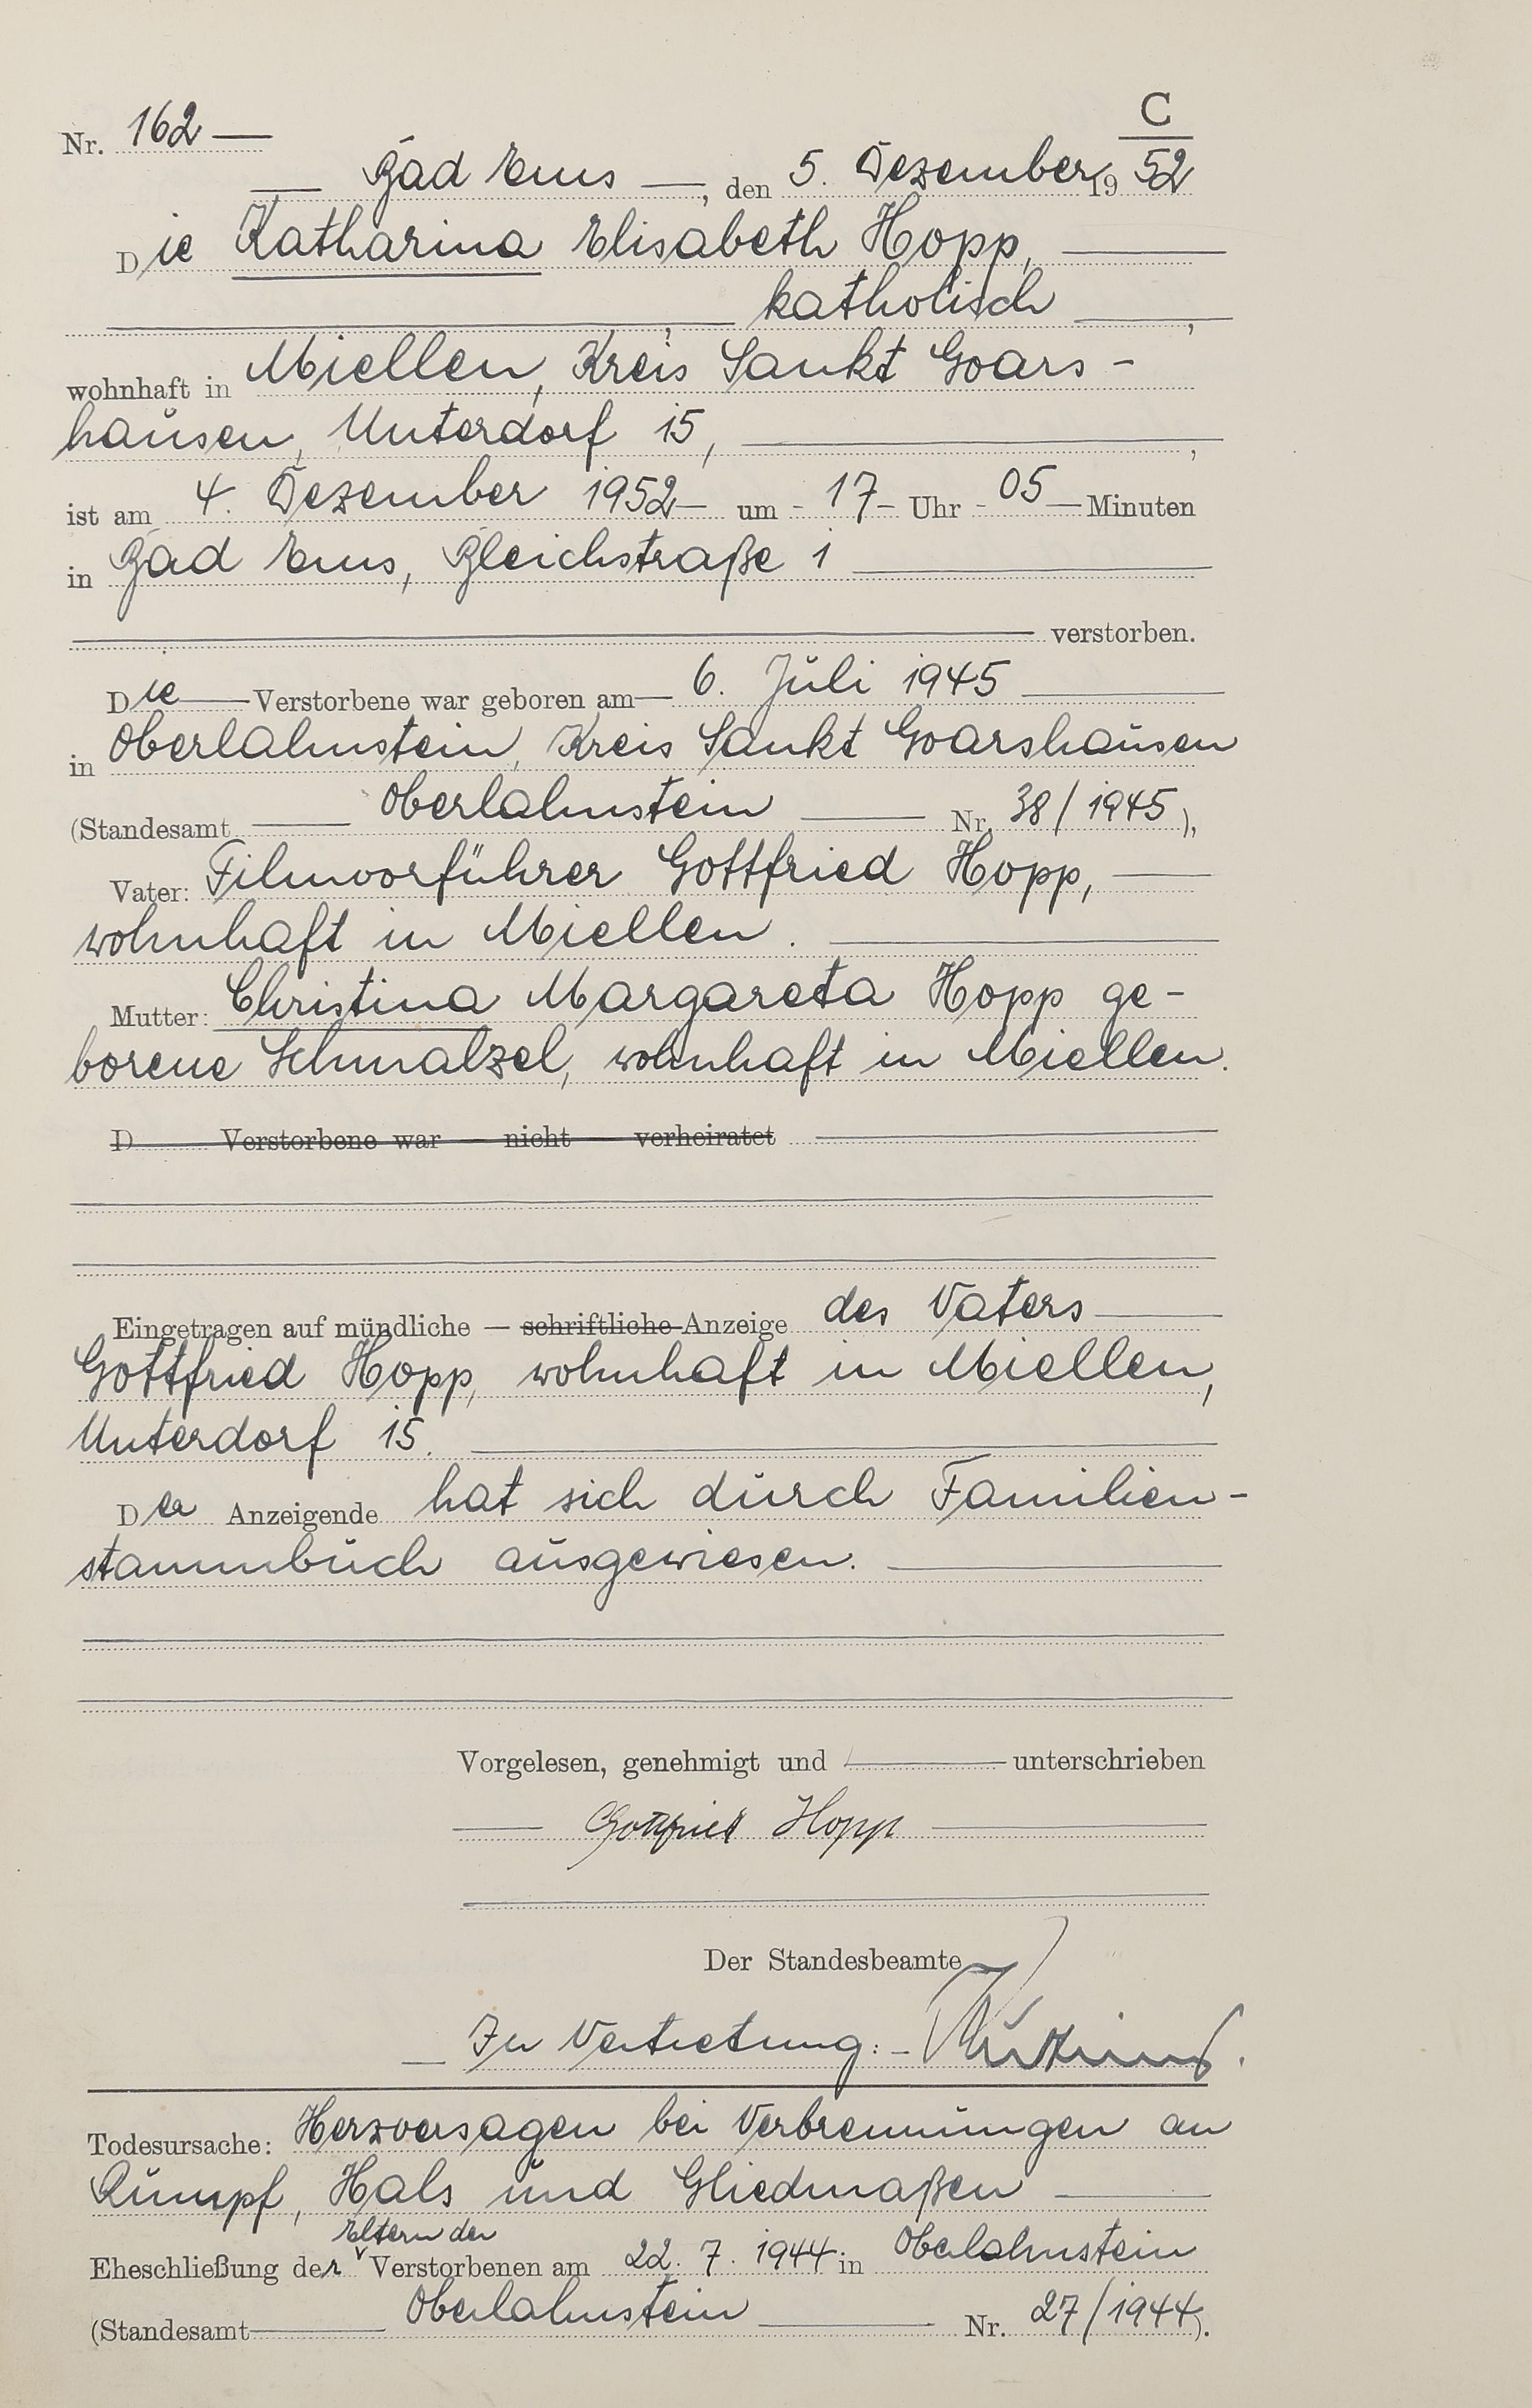 C
Nr. 162 —
— Bad Ems —, den 5. Dezember 19 52
Die Katharina Elisabeth Hopp, —
—, — katholisch —,
wohnhaft in Miellen, Kreis Sankt Goars-
hausen, Unterdorf 15, —,
ist am 4. Dezember 1952 — um - 17 - Uhr - 05 — Minuten
in Bad Ems, Bleichstraße 1 —
— verstorben.
Die — Verstorbene war geboren am — 6. Juli 1945 —
in Oberlahnstein, Kreis Sankt Goarshausen
(Standesamt — Oberlahnstein — Nr. 38/1945),
Vater: Filmvorführer Gottfried Hopp, —
wohnhaft in Miellen. —
Mutter: Christina Margareta Hopp ge-
borene Schmalzel, wohnhaft in Miellen.
D Verstorbene war — nicht — verheiratet —
Eingetragen auf mündliche — schriftliche Anzeige des Vaters —
Gottfried Hopp, wohnhaft in Miellen,
Unterdorf 15. —
Der Anzeigende hat sich durch Familien-
stammbuch ausgewiesen. —
Vorgelesen, genehmigt und — unterschrieben
— Gottfried Hopp —
Der Standesbeamte
— In Vertretung: -
Todesursache: Herzversagen bei Verbrennungen an
Rumpf, Hals und Gliedmaßen —
Eltern der
Eheschließung der Verstorbenen am 22. 7. 1944 in Oberlahnstein
(Standesamt — Oberlahnstein — Nr. 27/1944).